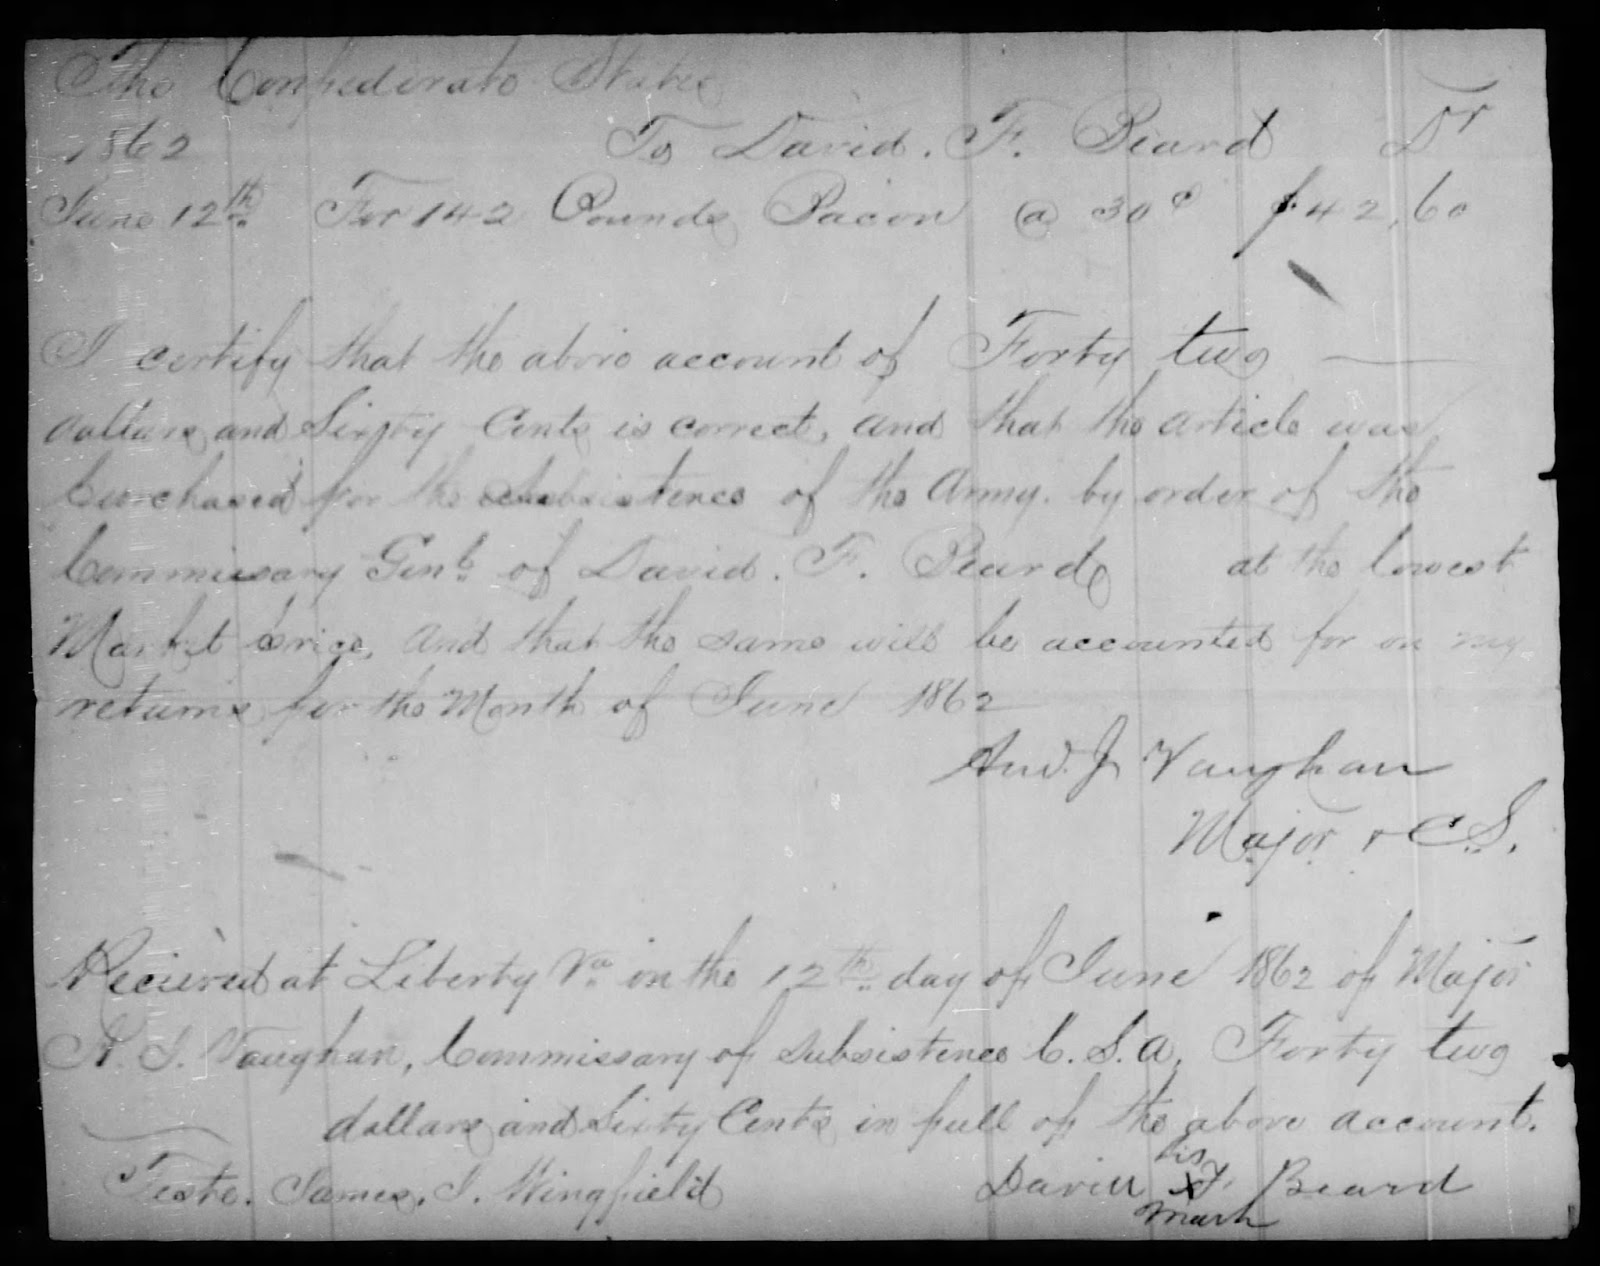 The Confederate States
1862 To David. F. Beard Dr
June 12th For 142 Pounds Bacon @ 30c $42,60
I certify that the above account of Forty two
dollars and Sixty Cents is correct, and that the article was
purchased for the subsistence of the Army. by order of the
Commissary Genl. of David. F. Beard at the lowest
Market price, and that the same will be accounted for on my
returns for the Month of June 1862
And. J Vaughan
Major & C.S.
Recieved at Liberty Va on the 12th day of June 1862 of Major
A. J. Vaughan, Commissary of subsistence C. S. A. Forty two
dollars and Sixty Cents in full of the above account.
Teste. James. J. Wingfield David his X F. Beard
mark